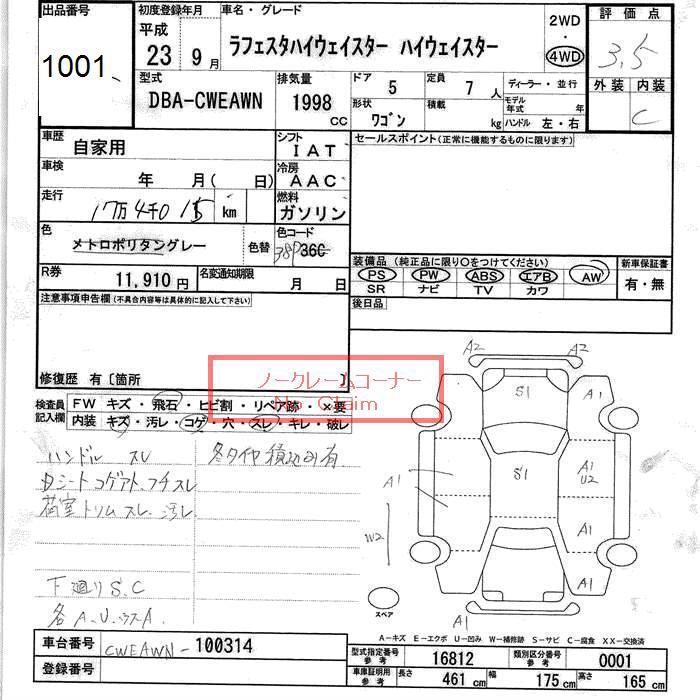 出品番号
1001
初度登録年月
平成
23 9 月
車名・グレード
ラフェスタハイウェイスター ハイウェイスター
2WD
・
4WD
評価点
3.5
外装 内装
C
型式
DBA-CWEAWN
排気量
1998
CC
ドア 5
定員 7 人
ディーラー・並行
形状
ワゴン
積載
kg
モデル年式 年
ハンドル 左・右
車歴
自家用
シフト
IAT
セールスポイント(正常に機能するものに限ります)
車検
年 月( 日)
冷房
AAC
走行
17万4千0 15 km
燃料
ガソリン
色
メトロポリタングレー
色替
色コード
38P 36C
装備品(純正品に限り○をつけてください)
新車保証書
PS PW ABS エアB AW
有・無
SR ナビ TV カワ
R券
11,910 円
名変通知期限
月 日
後日品
注意事項申告欄(不具合内容等は具体的に記入して下さい)
修復歴 有〔箇所 〕
ノークレームコーナー
No Claim
検査員
記入欄
FW キズ・飛石・ヒビ割・リペア跡・×要
内装 キズ・汚レ・コゲ・穴・スレ・キレ・破レ
ハンドル スレ
冬タイヤ積込み有
シートコゲアト、フチスレ
荷室トリムスレ、汚レ
下廻りS.C
各A.U.
A2 A2
S1 A1
A1 S1 A1
U2
W2 A1
A1
A1
スペア
A-キズ E-エクボ U-凹み W-補修跡 S-サビ C-腐食 XX-交換済
車台番号
CWEAWN-100314
登録番号
型式指定番号
参考
16812
類別区分番号
参考
0001
車庫証明用
参考
長さ 461 cm
幅 175 cm
高さ 165 cm